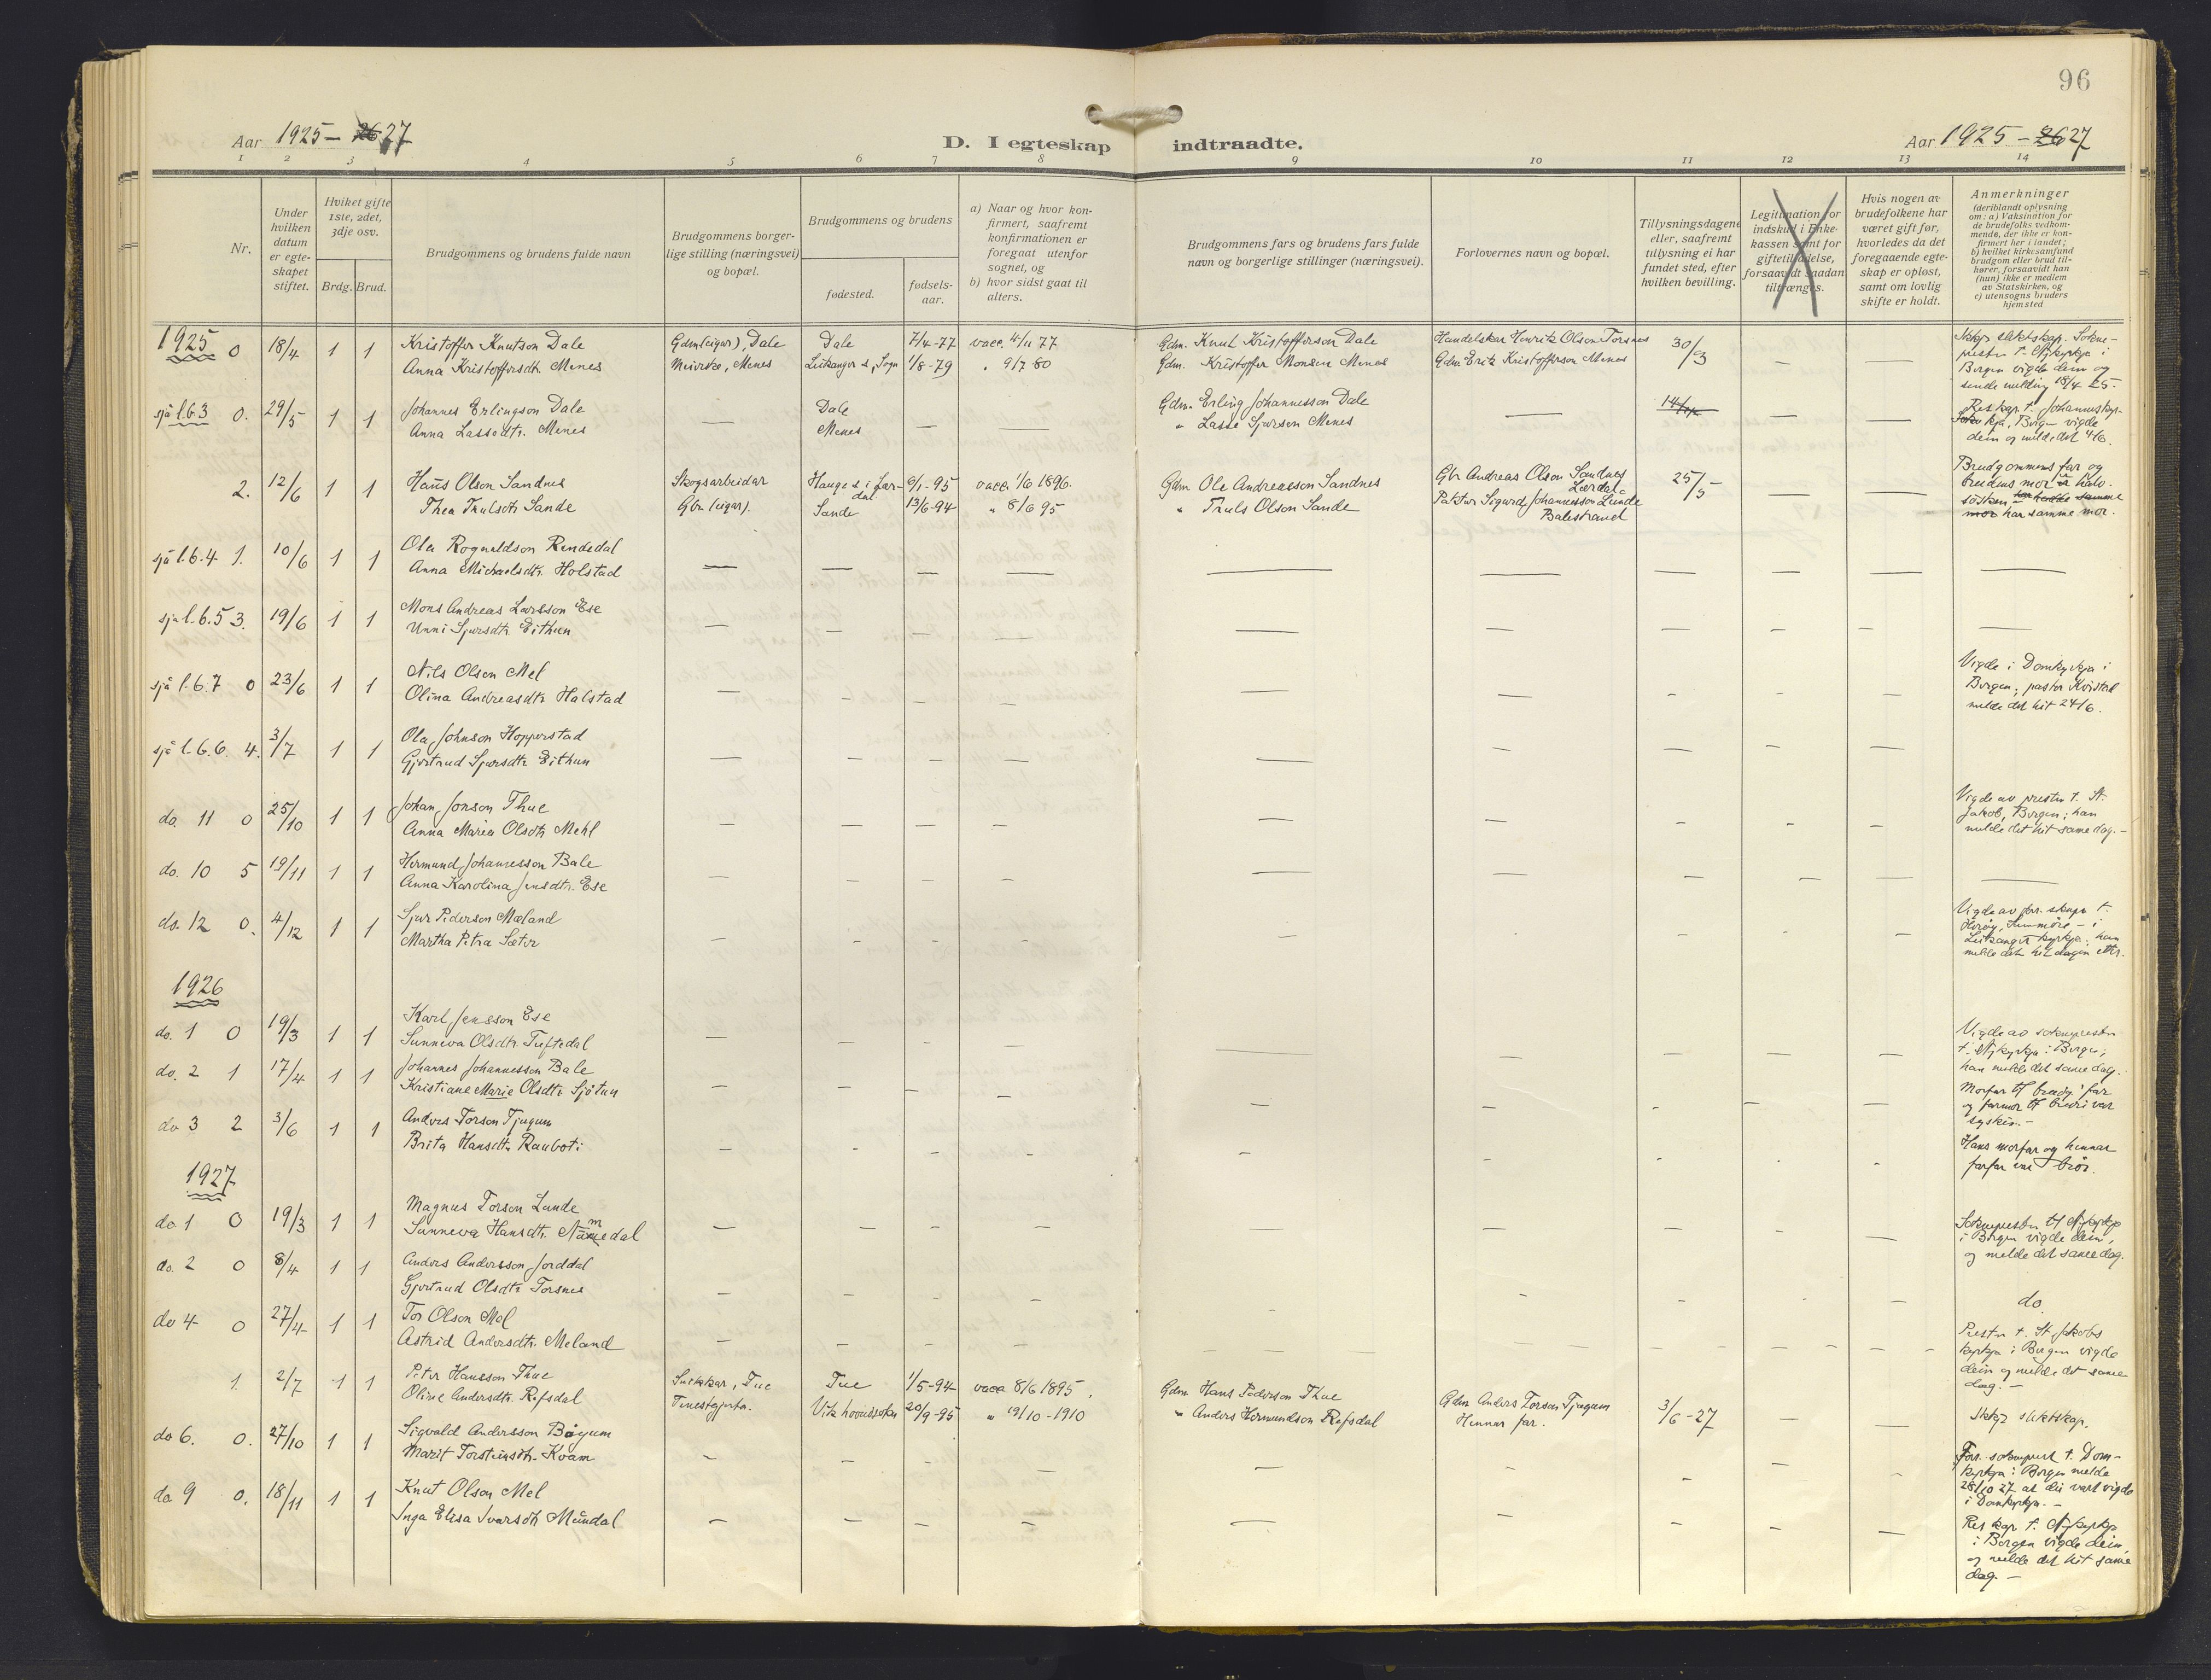 96
Aar 1925 – 26 27
D. I egteskap indtraadte.
Aar 1925 – 26 27
1 2 3 4 5 6 7 8 9 10 11 12 13 14
Nr.
Under hvilken datum er egteskapet stiftet.
Hviket gifte 1ste, 2det, 3dje osv.
Brdg. Brud.
Brudgommens og brudens fulde navn
Brudgommens borgerlige stilling (næringsvei) og bopæl.
Brudgommens og brudens
fødested.
fødselsaar.
a) Naar og hvor konfirmert, saafremt konfirmationen er foregaat utenfor sognet, og
b) hvor sidst gaat til alters.
Brudgommens fars og brudens fars fulde navn og borgerlige stillinger (næringsvei).
Forlovernes navn og bopæl.
Tillysningsdagene eller, saafremt tillysning ei har fundet sted, efter hvilken bevilling.
Legitimation for indskud i Enkekassen samt for giftetilladelse, forsaavidt saadan tiltrænges.
Hvis nogen av brudefolkene har været gift før, hvorledes da det foregaaende egteskap er opløst, samt om lovlig skifte er holdt.
Anmerkninger (deriblandt oplysning om: a) Vaksination for de brudefolks vedkommende, der ikke er konfirmert her i landet; b) hvilket kirkesamfund brudgom eller brud tilhører, forsaavidt han (hun) ikke er medlem av Statskirken, og c) utensogns bruders hjemsted
1925 0 18/4 1 1 Kristoffer Knutson Dale Gdm (eigar), Dale Dale 7/4-77 vacc. 4/11 77 Gdm. Knut Kristofferson Dale Handelskar Henrik Olson Torsnes 30/3
Anna Kristoffersdtr. Menes Meierske, Menes Leikanger s, Sogn 1/8-79 " 9/7-80 Gdm. Kristoffer Monsen Menes Gdm. Erik Kristofferson Menes
Ikkje slektskap. Sokne-
presten t. Nykyrkja i
Bergen vigde dem og
sende melding 18/4 25.
sjå l.b.3 0. 29/5 1 1 Johannes Erlingson Dale — Dale — — Gdm. Erling Johannesson Dale — — —
Anna Lassedtr. Menes Menes " Lasse Sjurson Menes
Res kap. t. Johanneskyr-
kja, Bergen vigde
dem og melde det 4/6.
2. 12/6 1 1 Hans Olson Sandnes Skogsarbeidar Hauge s i Lær- 9/1-95 vacc. 1/6 1896 Gdm Ole Andreasson Sandnes Gbr Andreas Olson Sandnes 25/5 — —
dal Lærdal
Thea Trulsdtr Sande Gbr. (eigar). Sande 13/6-94 " 8/6 95 " Truls Olson Sande Paktar Sigurd Johannesson Linde
Balestrand
Brudgommens far og
brudens mor er halv-
søsken har samme mor.
sjå l.b.4 1. 10/6 1 1 Ola Rognaldson Rendedal
Anna Michaelsdtr. Holstad
sjå l.b.5 3. 19/6 1 1 Mons Andreas Larsson Ese
Unni Sjursdtr. Eithun
sjå l.b.7 0 23/6 1 1 Nils Olson Mel
Olina Andreasdtr Halstad
Vigde i Domkyrkja i
Bergen; pastor Kvistad
melde det hit 24/6.
sjå l.b.6. 4. 3/7 1 1 Ola Johnson Hopperstad
Gjertrud Sjursdtr Eithun
do. 11 0 25/10 1 1 Johan Jonson Thue
Anna Maria Olsdtr Mehl
Vigde av presten t. St.
Jakob, Bergen; han
melde det hit same dag. –
do. 10 5 19/11 1 1 Hermund Johannesson Bale
Anna Karolina Jensdtr. Ese
do. 12 0. 4/12 1 1 Sjur Pederson Mæland
Martha Petra Sæter
1926
do. 1 0 19/3 1 1 Karl Jensson Ese
Sunneva Olsdtr. Tuftedal
Vigde av sokneprestn
t. Nykyrkja i Bergen;
han melde det same dag.
do. 2 1 17/4 1 1 Johannes Johannesson Bale
Kristiane Marie Olsdtr Sjøtun
Morfar til brudg. far
og farmor til bruri var
sysken. –
do 3 2 3/6 1 1 Anders Torson Tjugum
Brita Hansdtr Rauboti
Hans morfar og hennar
farfar var brør.
1927
do 1 0 19/3 1 1 Magnus Torson Lunde
Sunneva Hansdtr. Nummedal
Soknepresten til Nykyrkja
i Bergen vigde dem,
og melde det same dag.
do. 2 0 8/4 1 1 Anders Andersson Jorddal
Gjertrud Olsdtr Torsnes
do
do 4 0 27/4 1 1 Tor Olson Mel
Astrid Andersdtr. Meland
Presten t. St. Jakobs
kyrkja i Bergen vigde
dem og melde det same
dag. –
1. 2/7 1 1 Peter Hansson Thue Snikkar, Tue Tue 1/5-94 vacc 8/6 1895. Gdm Hans Pederson Thue Gdm Anders Torson Tjugum 3/6-27 — —
Oline Andersdtr. Refsdal Tenestgjenta. Vik hovudsokn 20/9-95 " 19/10-1910 " Anders Hermundson Refsdal Hennar far.
Ikkje slektskap.
do 6. 0. 27/10 1 1 Sigvald Andersson Bøyum
Marit Torsteinsdtr. Kvam
Før. sokneprest t. Dom-
kyrkja i Bergen melde
28/10 27 at dei vart vigde
i Domkyrkja. –
do 9 0. 18/11 1 1 Knut Olson Mel
Inga Elisa Ivarsdtr Mundal
Res kap t. Nykyrkja
i Bergen vigde dem,
og melde det hit same
dag. –